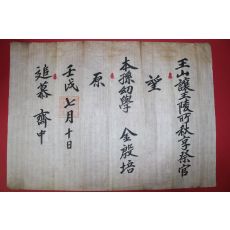 王山讓王陵所秋享祭官
望
本孫幼學 金殷培
原
壬戌七月十日
追慕齋中